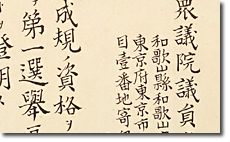 衆議院議員
和歌山縣和歌山
東京府東京市
目壹番地寄
成規ノ資格ヲ
第一選擧